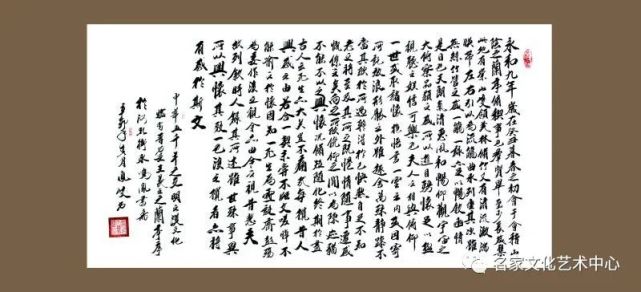 永和九年歲在癸丑暮春之初會于會稽山
陰之蘭亭脩禊事也群賢畢至少長咸集
此地有崇山峻領茂林脩竹又有清流激湍
暎帶左右引以為流觴曲水列坐其次雖
無絲竹管弦之盛一觴一詠亦足以暢敘幽情
是日也天朗氣清惠風和暢仰觀宇宙之
大俯察品類之盛所以遊目騁懷足以極
視聽之娛信可樂也夫人之相與俯仰
一世或取諸懷抱悟言一室之內或因寄
所託放浪形骸之外雖趣舍萬殊靜躁不同
當其欣於所遇暫得於己快然自足不知
老之將至及其所之既惓情隨事遷感
慨係之矣向之所欣俛仰之間以為陳迹猶
不能不以之興懷況脩短隨化終期於盡
古人云死生亦大矣豈不痛哉每攬昔人
興感之由若合一契未嘗不臨文嗟悼不
能喻之於懷固知一死生為虛誕齊彭殤
為妄作後之視今亦由今之視昔悲夫
故列敘時人錄其所述雖世殊事異
所以興懷其致一也後之攬者亦將
有感於斯文
中華五千年之文明
王羲之蘭亭序
於河北衡水
名家文化艺术中心